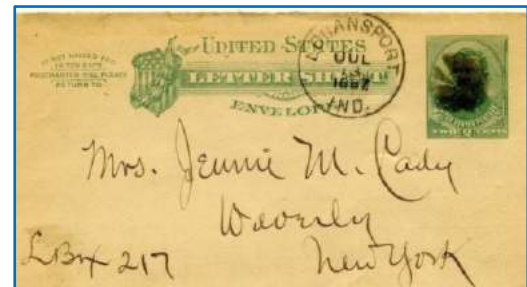 IF NOT CALLED FOR
IN TEN DAYS
POSTMASTER WILL PLEASE
RETURN TO
UNITED STATES
LETTER SHEET
ENVELOPE
LOGANSPORT
JUL
1892
IND.
TWO 2 CENTS
Mrs. Jennie M. Cady
Waverly
New York
L Box 217